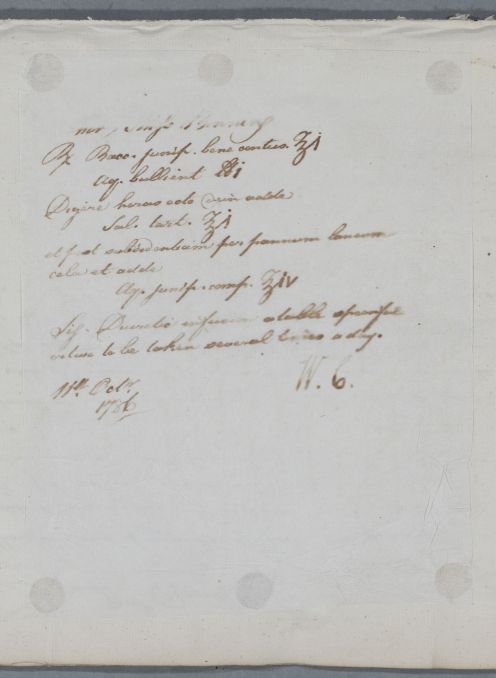 ℞ Bacc. junip. bene contus. ℥j
Aq. bullient ℔i
Digere horas octo dein adde
Sal. tart. ʒj
et post subsidentiam per pannum laneum
cola et adde
Aq. junip. comp. ℥iv
Sig. Diuretic infusion a table spoonful
or two to be taken several times a day.
11th Octr. W. C.
1786